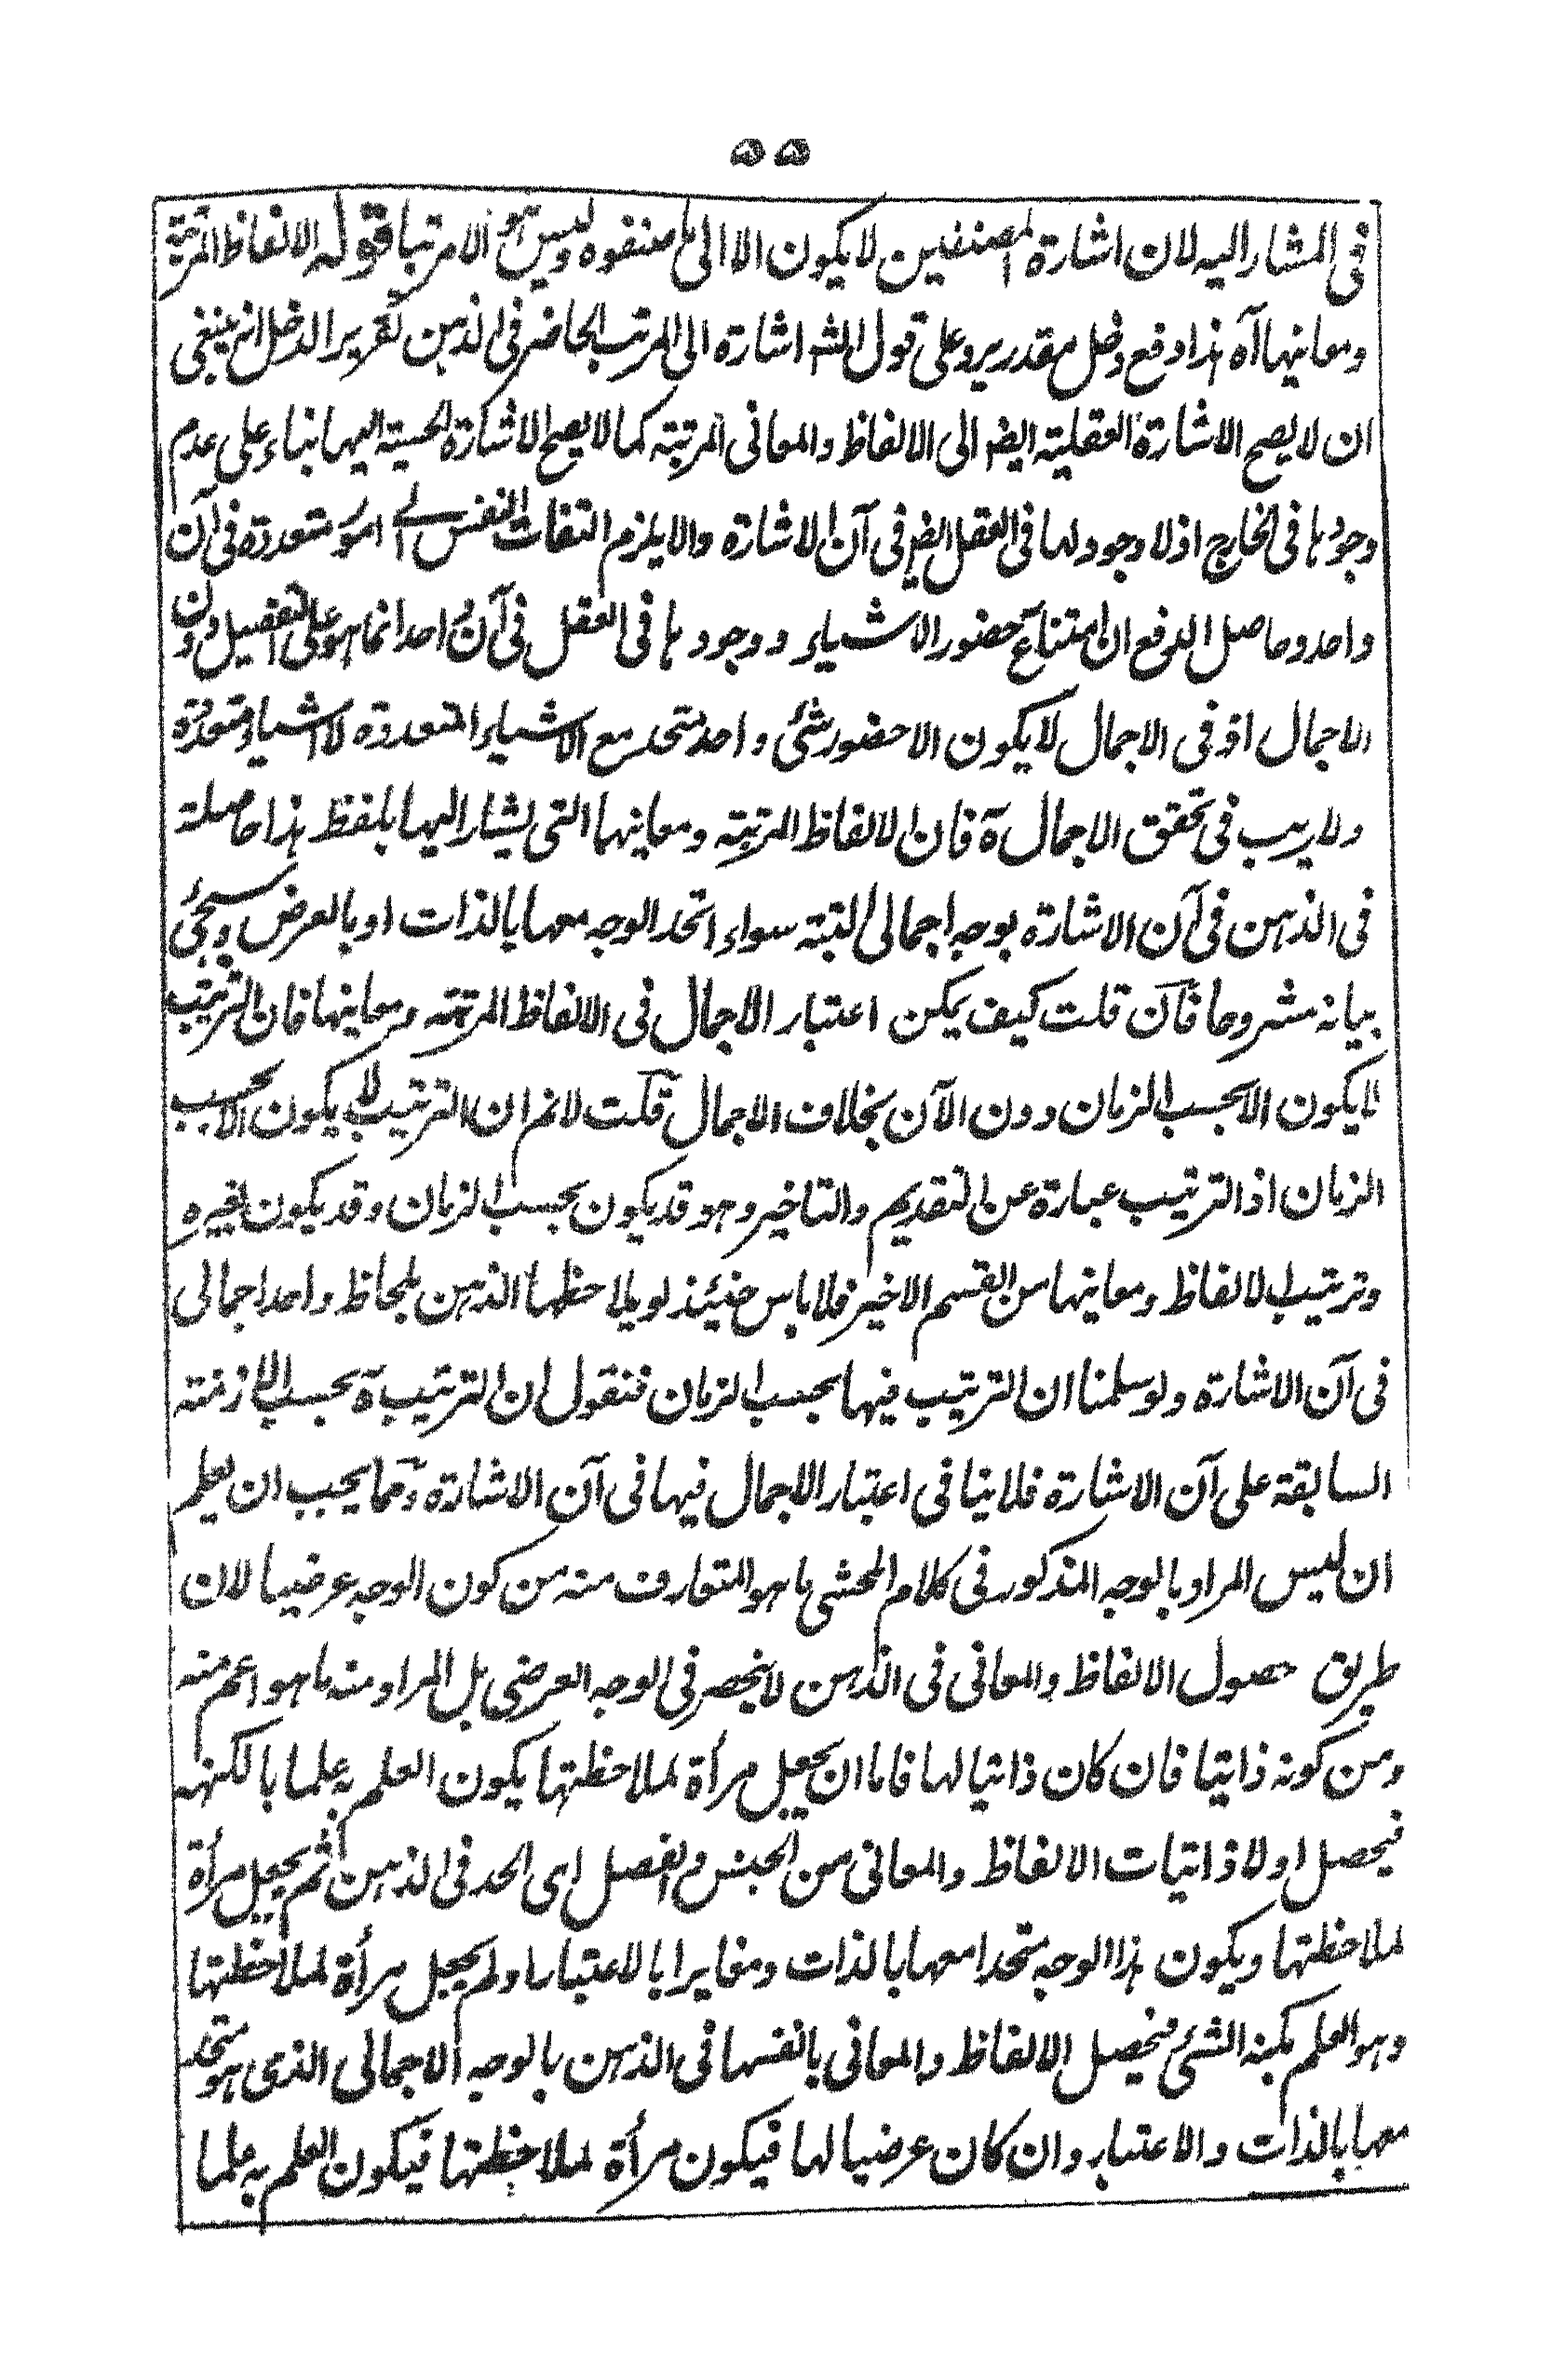 ۵۵
فى المشار اليه لان اشارة المصنفين لا يكون الا الى ما صنفوه وليس هو الا مرتبا قوله الالفاظ المرتبة
ومعانيها آه هذا دفع دخل مقدر يرد على قول الشه اشارة الى المرتب الحاضر فى الذهن تقرير الدخل انه ينبغى
ان لا يصح الاشارة العقلية ايضا الى الالفاظ والمعانى المرتبة كما لا يصح الاشارة الحسية اليها بناء على عدم
وجودها فى الخارج اذ لا وجود لها فى العقل ايضا فى آن الاشارة والا يلزم التفات النفس الے امور متعددة فى آن
واحد وحاصل الدفع ان امتناع حضور الاشياء ووجودها فى العقل فى آن واحد انما هو على التفصيل دون
الاجمال اذ فى الاجمال لا يكون الا حضور شئى واحد متحد مع الاشياء المتعددة لا اشياء متعددة
ولا ريب فى تحقق الاجمال ة فان الالفاظ المرتبة ومعانيها التى يشار اليها بلفظ هذا حاصلة
فى الذهن فى آن الاشارة بوجه اجمالى البتة سواء اتحد الوجه معها بالذات او بالعرض وسيجئى
بيانه مشروحا فان قلت كيف يمكن اعتبار الاجمال فى الالفاظ المرتبة ومعانيها فان الترتيب
لا يكون الا بحسب الزمان دون الآن بخلاف الاجمال قلت لا نم ان الترتيب لا يكون الا بحسب
الزمان اذ الترتيب عبارة عن التقديم والتاخير وهو قد يكون بحسب الزمان وقد يكون بغيره
وترتيب الالفاظ ومعانيها من القسم الاخير فلا باس حينئذ لو يلاحظها الذهن بلحاظ واحد اجمالى
فى آن الاشارة ولو سلمنا ان الترتيب فيها بحسب الزمان فنقول ان الترتيب ة بحسب الازمنة
السابقة على آن الاشارة فلا ينافى اعتبار الاجمال فيها فى آن الاشارة ومما يجب ان يعلم
ان ليس المراد بالوجه المذكور فى كلام المحشى ما هو المتعارف منه من كون الوجه عرضيا لان
طريق حصول الالفاظ والمعانى فى الذهن لا ينحصر فى الوجه العرضى بل المراد منه ما هو اعم منه
ومن كونه ذاتيا فان كان ذاتيا لها فاما ان يجعل مرأة لملاحظتها يكون العلم به علما بالكنه
فيحصل اولا ذاتيات الالفاظ والمعانى من الجنس والفصل اى الحد فى الذهن ثم يجعل مرأة
لملاحظتها ويكون هذا الوجه متحدا معها بالذات ومغايرا بالاعتبار او لم يجعل مرأة لملاحظتها
وهو العلم بكنه الشئى فيحصل الالفاظ والمعانى بانفسها فى الذهن بالوجه الاجمالى الذى هو متحد
معها بالذات والاعتبار وان كان عرضيا لها فيكون مرأة لملاحظتها فيكون العلم به علما